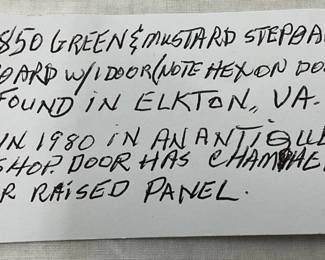 1850 GREEN & MUSTARD STEPBA
OARD W/1 DOOR (NOTE HEX ON DO
FOUND IN ELKTON, VA.
IN 1980 IN AN ANTIQUE
SHOP. DOOR HAS CHAMPHE
R RAISED PANEL.